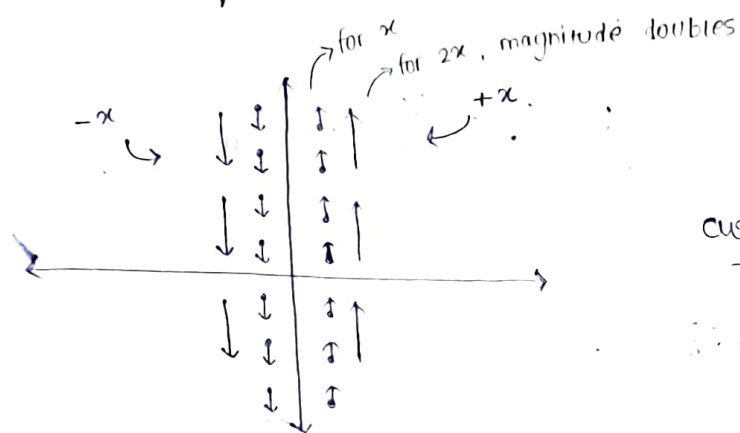 for x
for 2x, magnitude doubles
-x
+x.